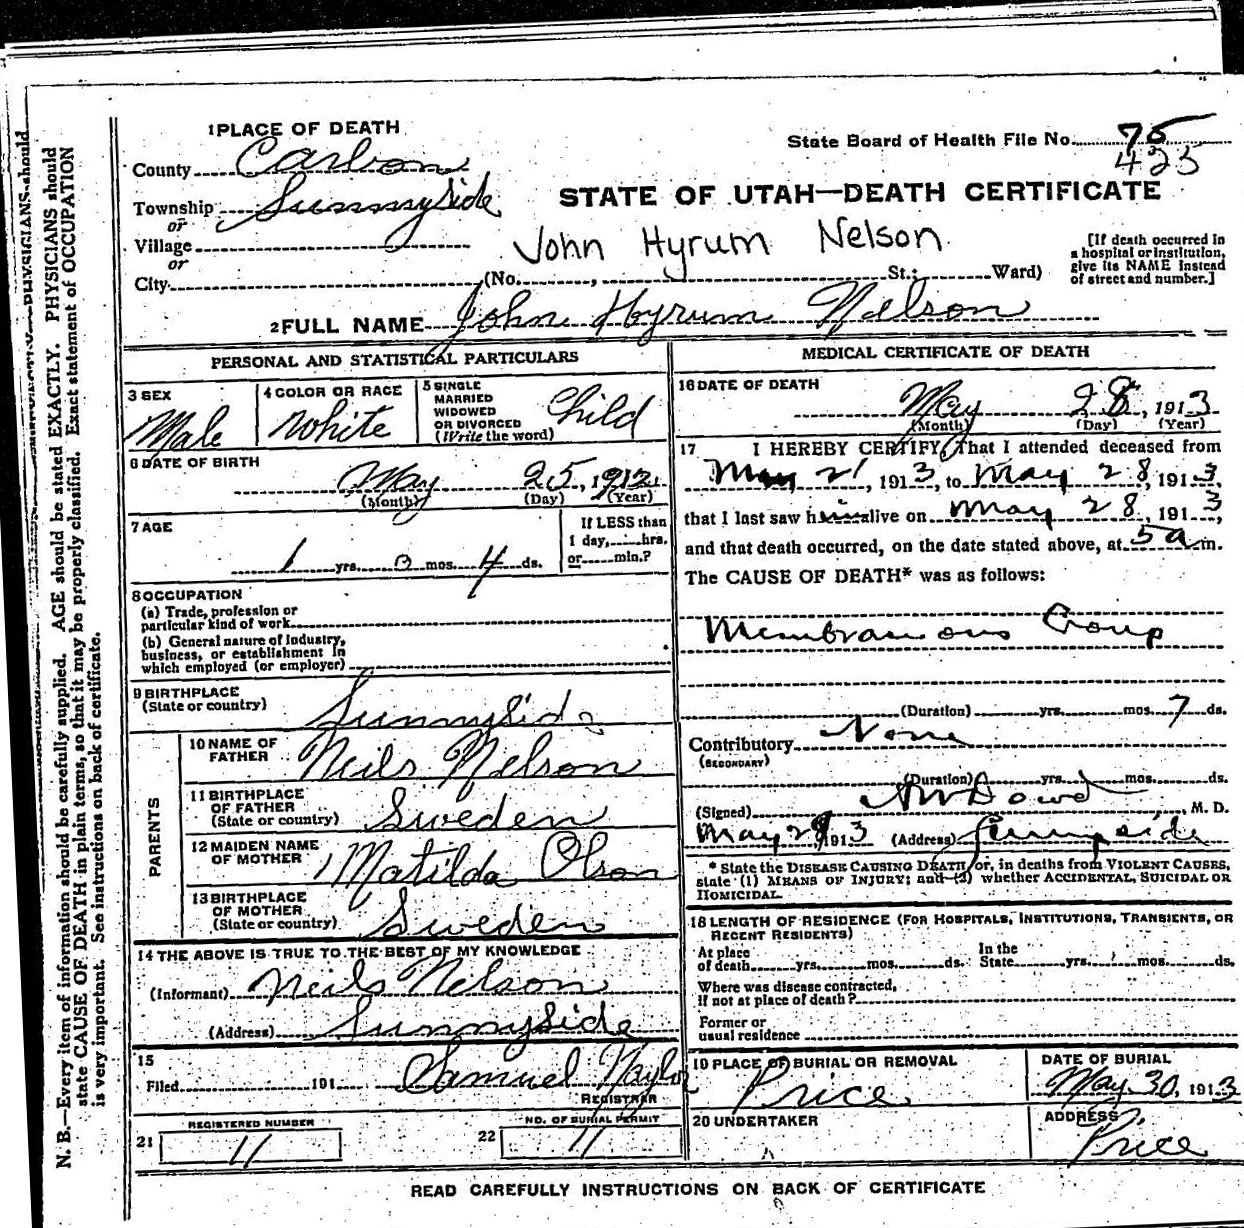 1 PLACE OF DEATH
County Carbon
Township Sunnyside
or
Village
or
City (No. , St.; Ward)
State Board of Health File No. 75
425
STATE OF UTAH—DEATH CERTIFICATE
John Hyrum Nelson
[If death occurred in
a hospital or institution,
give its NAME instead
of street and number.]
2 FULL NAME John Hyrum Nelson
PERSONAL AND STATISTICAL PARTICULARS
3 SEX
Male
4 COLOR OR RACE
White
5 SINGLE
MARRIED
WIDOWED
OR DIVORCED
(Write the word)
Child
6 DATE OF BIRTH
May 25, 1912
(Month) (Day) (Year)
7 AGE
1 yrs. 0 mos. 4 ds.
If LESS than
1 day, hrs.
or min.?
8 OCCUPATION
(a) Trade, profession or
particular kind of work
(b) General nature of industry,
business, or establishment in
which employed (or employer)
9 BIRTHPLACE
(State or country)
Sunnyside
PARENTS
10 NAME OF
FATHER
Neils Nelson
11 BIRTHPLACE
OF FATHER
(State or country)
Sweden
12 MAIDEN NAME
OF MOTHER
Matilda Olson
13 BIRTHPLACE
OF MOTHER
(State or country)
Sweden
14 THE ABOVE IS TRUE TO THE BEST OF MY KNOWLEDGE
(Informant) Neils Nelson
(Address) Sunnyside
15
Filed 191 Samuel Naylor
REGISTRAR
21
REGISTERED NUMBER
11
22
NO. OF BURIAL PERMIT
11
MEDICAL CERTIFICATE OF DEATH
16 DATE OF DEATH
May 28, 1913
(Month) (Day) (Year)
17 I HEREBY CERTIFY, That I attended deceased from
May 21, 1913, to May 28, 1913,
that I last saw him alive on May 28, 1913,
and that death occurred, on the date stated above, at 5 a m.
The CAUSE OF DEATH* was as follows:
Membranous Croup
(Duration) yrs. mos. 7 ds.
Contributory None
(SECONDARY)
(Duration) yrs. mos. ds.
(Signed) Dowd, M. D.
May 29, 1913 (Address) Sunnyside
* State the DISEASE CAUSING DEATH, or, in deaths from VIOLENT CAUSES,
state (1) MEANS OF INJURY; and (2) whether ACCIDENTAL, SUICIDAL OR
HOMICIDAL.
18 LENGTH OF RESIDENCE (FOR HOSPITALS, INSTITUTIONS, TRANSIENTS, OR
RECENT RESIDENTS)
At place
of death yrs. mos. ds.
In the
State yrs. mos. ds.
Where was disease contracted,
if not at place of death?
Former or
usual residence
19 PLACE OF BURIAL OR REMOVAL
Price
DATE OF BURIAL
May 30, 1913
20 UNDERTAKER
ADDRESS
Price
READ CAREFULLY INSTRUCTIONS ON BACK OF CERTIFICATE
N. B.—Every item of information should be carefully supplied. AGE should be stated EXACTLY. PHYSICIANS should
state CAUSE OF DEATH in plain terms, so that it may be properly classified. Exact statement of OCCUPATION
is very important. See instructions on back of certificate.